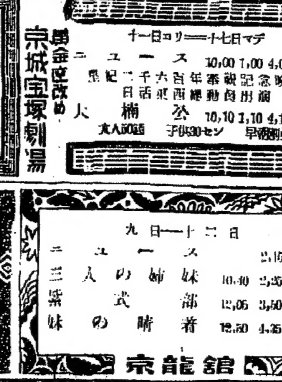 黄金座改め
京城宝塚劇場
十一日ヨリ══十七日マデ
ニュース 10,00 1,00 4,0
皇紀二千六百年奉祝記念映
日活東西総動員出演
大楠公 10,10 1,10 4,1
大人50銭 子供30セン
九日──十二日
ニュース 2,15
三人の姉妹 10,40 2,25
紫式部 12,05 3,50
妹の晴着 12,50 4,35
京龍館